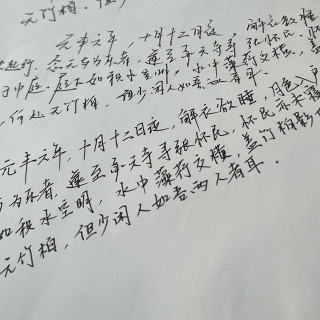 无竹柏,但少
元丰六年,十月十二日夜,解衣欲睡
起行,念无与为乐者,遂至承天寺寻张怀民,怀
于中庭,庭下如积水空明,水中藻荇交横,盖
何处无竹柏,但少闲人如吾两人者耳
元丰六年,十月十二日夜,解衣欲睡,月色入户
为乐者,遂至承天寺寻张怀民,怀民亦未寝
如积水空明,水中藻荇交横,盖竹柏影也
无竹柏,但少闲人如吾两人者耳.